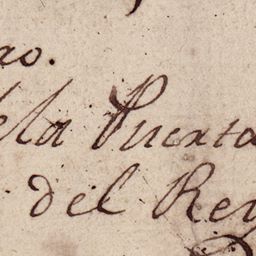 ro.
dela Puerta
del Rey